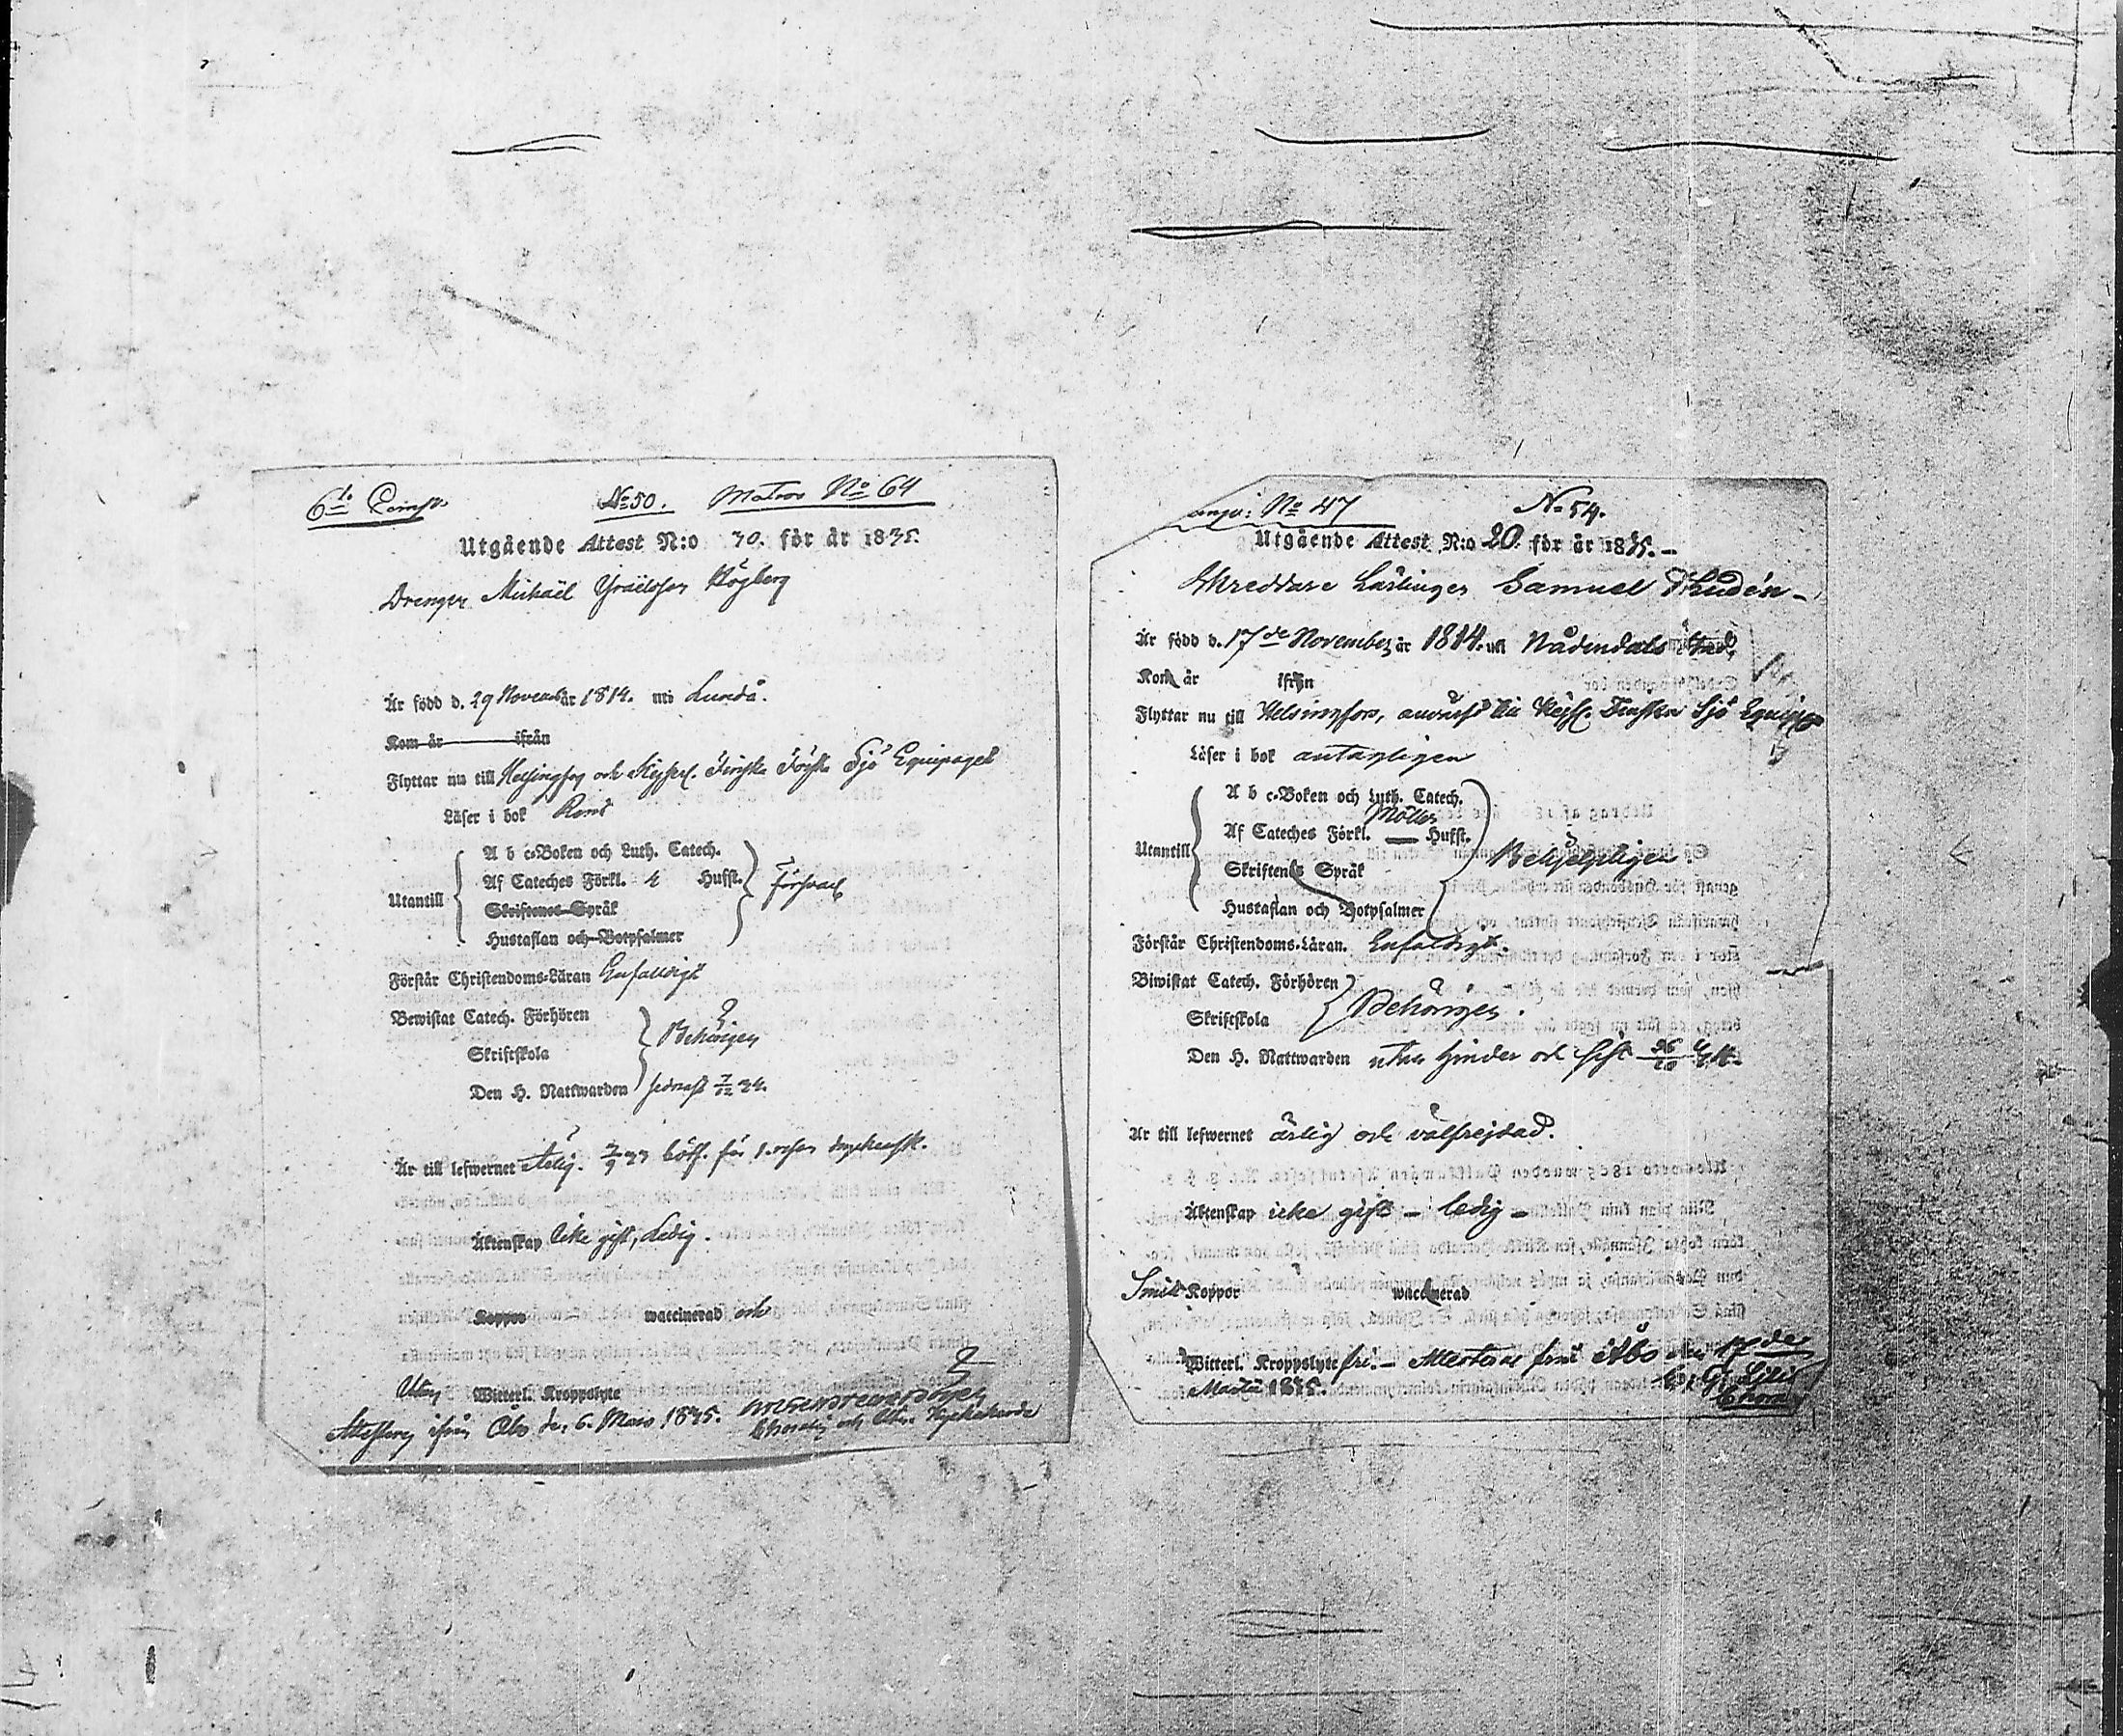 6te Comp. No 50. Matros No 64
Utgående Attest N:o 30. för år 1835.
Drengen Michaël Ysraëlsson Högberg
Är född d. 29 November år 1814. uti Lundå.
Kom år ifrån
Flyttar nu till Helsingfors och Kejserl. Finska Sjö Equipaget
Läser i bok Rent
Utantill
A b c-Boken och Luth. Catech.
Af Cateches Förkl. Hufst.
Skriftenes Språk
Hustaflan och Botpsalmer
Försvarl.
Förstår Christendoms-Läran Enfaldigt
Bewistat Catech. Förhören
Skriftskola
Behörigen
Den H. Nattwarden sednast 7/12 34.
Är till lefwernet ärlig. böt. för 1. resan
Äktenskap icke gift, Ledig.
Koppor waccinerad och
Utan Witterl. Kroppslyte
Attesterar ifrån Åbo den 6. Mars 1835.
No 47 N. 54.
Utgående Attest N:o 20. för år 1835.
Skreddare Lärlingen Samuel Thudén
Är född d. 17de November år 1814. uti Nådendals Stad,
Kom år ifrån
Flyttar nu till Helsingfors, Kejs. Finska Sjö Equipaget
Läser i bok antagligen
Utantill
A b c-Boken och Luth. Catech.
Möllers
Af Cateches Förkl. — Hufst.
Skriftenes Språk
Hustaflan och Botpsalmer
Behjelpligen
Förstår Christendoms-Läran. Enfaldigt.
Biwistat Catech. Förhören
Skriftskola
Behörigen.
Den H. Nattwarden utan hinder och sist 26/10
Är till lefwernet ärlig och välfrejdad.
Äktenskap icke gift – ledig –
Smitt Koppor waccinerad
Witterl. Kroppslyte fri. – Attesteras från Åbo den 17de
Martii 1835.